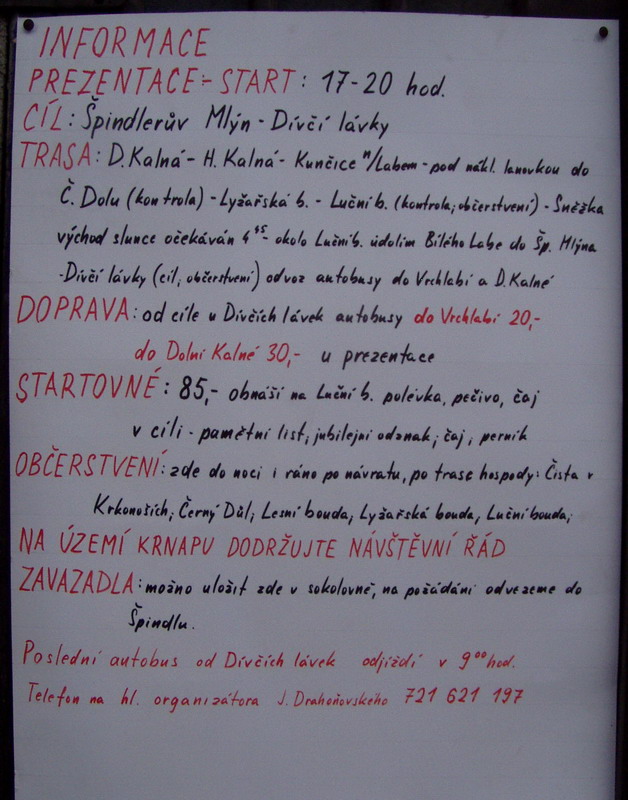 INFORMACE
PREZENTACE - START: 17-20 hod.
CÍL: Špindlerův Mlýn - Dívčí lávky
TRASA: D. Kalná - H. Kalná - Kunčice n/Labem - pod nákl. lanovkou do
Č. Dolu (kontrola) - Lyžařská b. - Luční b. (kontrola; občerstvení) - Sněžka
východ slunce očekáván 4⁴⁵ - okolo Luční b. údolím Bílého Labe do Šp. Mlýna
- Dívčí lávky (cíl; občerstvení) odvoz autobusy do Vrchlabí a D. Kalné
DOPRAVA: od cíle u Dívčích lávek autobusy do Vrchlabí 20,-
do Dolní Kalné 30,- u prezentace
STARTOVNÉ: 85,- obnáší na Luční b. polévka, pečivo, čaj
v cíli - pamětní list; jubilejní odznak; čaj; perník
OBČERSTVENÍ: zde do noci i ráno po návratu, po trase hospody: Čistá v
Krkonoších; Černý Důl; Lesní bouda; Lyžařská bouda, Luční bouda;
NA ÚZEMÍ KRNAPU DODRŽUJTE NÁVŠTĚVNÍ ŘÁD
ZAVAZADLA: možno uložit zde v sokolovně, na požádání odvezeme do
Špindlu.
Poslední autobus od Dívčích lávek odjíždí v 9⁰⁰ hod.
Telefon na hl. organizátora J. Drahoňovského 721 621 197